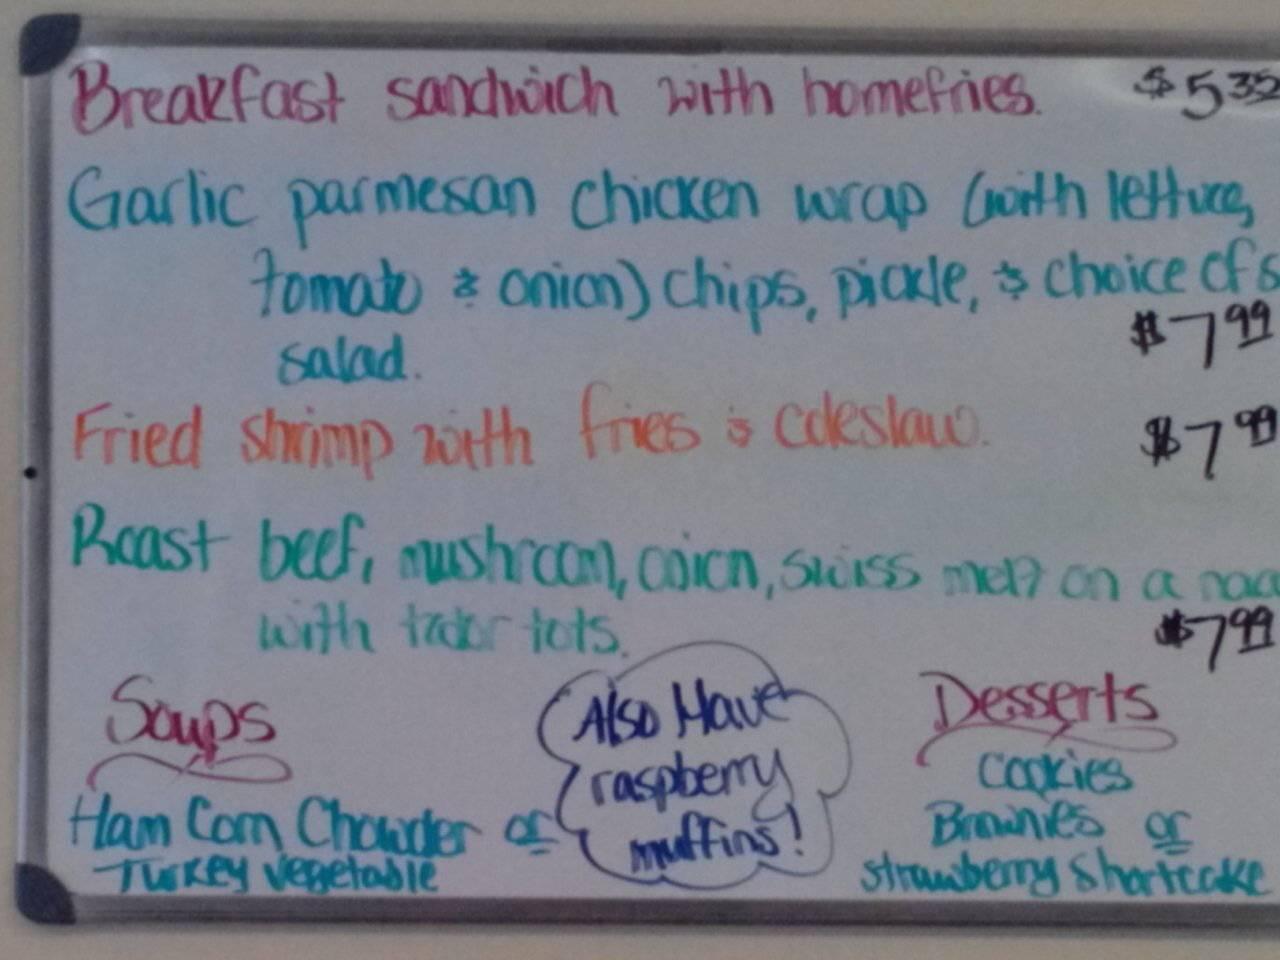 Breakfast sandwich with homefries. $5.35
Garlic parmesan chicken wrap (with lettuce,
tomato & onion) chips, pickle, & choice of s
salad. $7.99
Fried shrimp with fries & coleslaw. $7.99
Roast beef, mushroom, onion, swiss melt on a naa
with tator tots. $7.99
Soups
Ham Corn Chowder or
Turkey vegetable
Also Have
raspberry
muffins!
Desserts
Cookies
Brownies or
Strawberry Shortcake